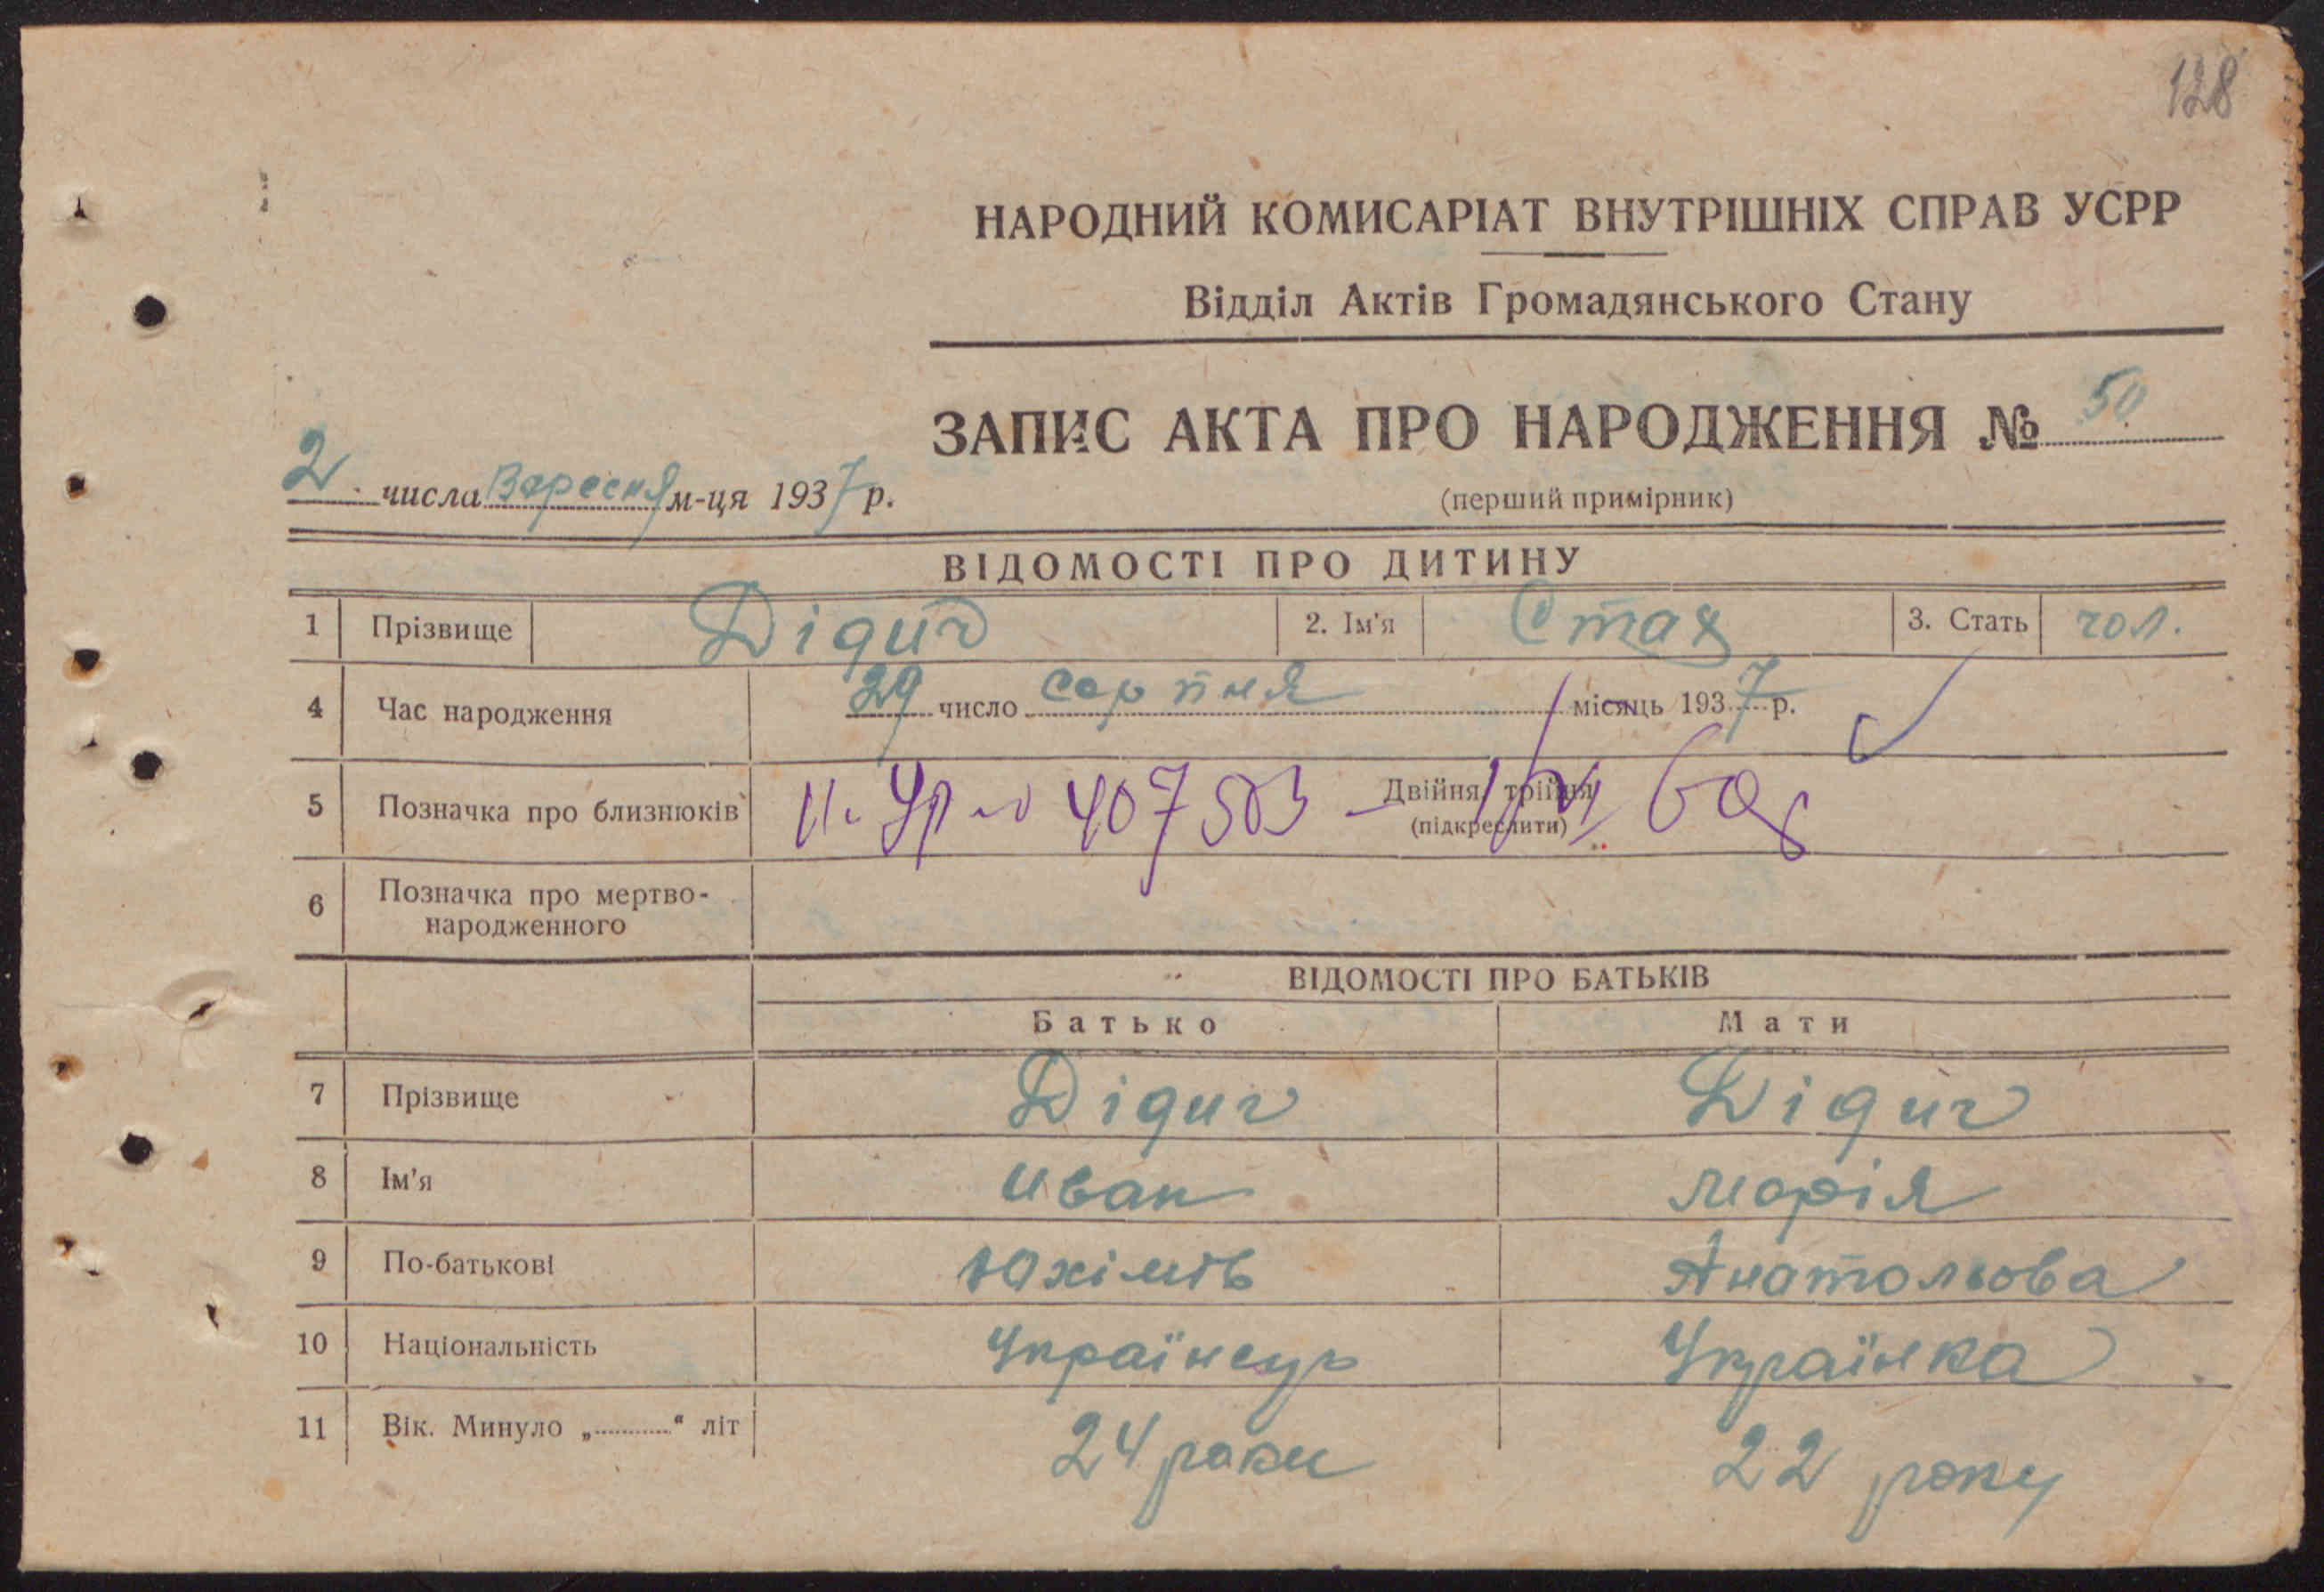 128
НАРОДНИЙ КОМИСАРІАТ ВНУТРІШНІХ СПРАВ УСРР
Відділ Актів Громадянського Стану
ЗАПИС АКТА ПРО НАРОДЖЕННЯ № 50
2 числа Вересня м-ця 1937 р.
(перший примірник)
ВІДОМОСТІ ПРО ДИТИНУ
1 Прізвище Дідич 2. Ім'я Стах 3. Стать чол.
4 Час народження 29 число серпня місяць 1937 р.
5 Позначка про близнюків Двійня, трійня
407503
(підкреслити)
6 Позначка про мертво-
народженного
ВІДОМОСТІ ПРО БАТЬКІВ
Батько Мати
7 Прізвище Дідич Дідич
8 Ім'я Иван Марія
9 По-батькові Юхімів Анатольова
10 Національність Українець Українка
11 Вік. Минуло „..........“ літ 24 роки 22 року